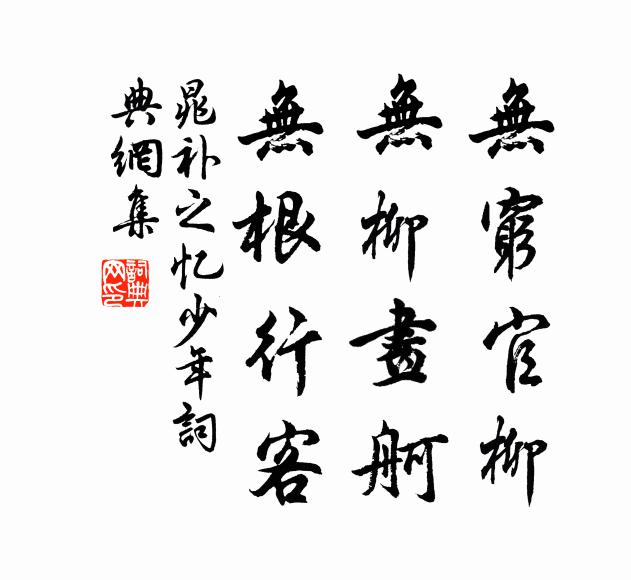 無窮官柳
無柳畫舸
無根行客
晁补之忆少年詞
典網集
詞典
网印